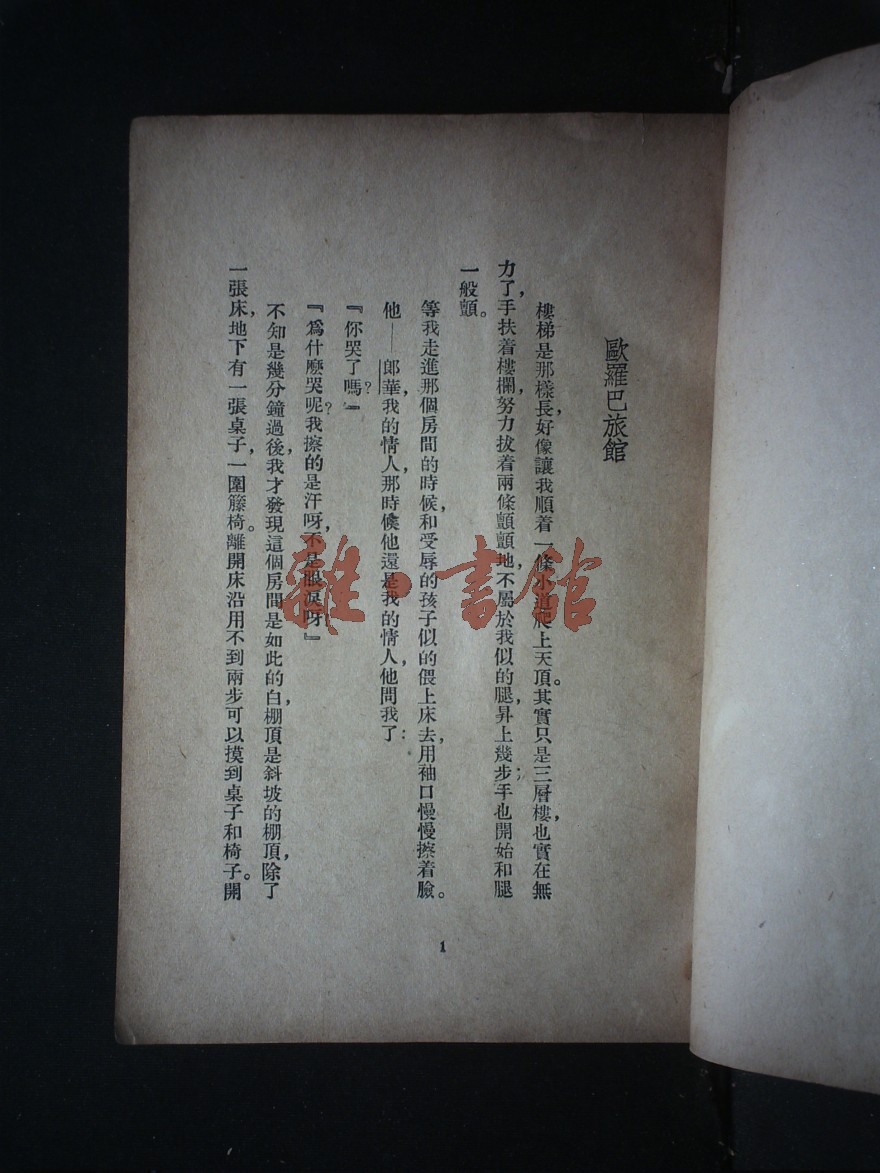 歐羅巴旅館
樓梯是那樣長，好像讓我順着一條小道爬上天頂。其實只是三層樓，也實在無
力了，手扶着樓欄，努力拔着兩條顫顫地，不屬於我似的腿，昇上幾步，手也開始和腿
一般顫。
等我走進那個房間的時候，和受辱的孩子似的偎上床去，用袖口慢慢擦着臉。
他——郎華，我的情人，那時候他還是我的情人，他問我了：
『你哭了嗎？』
『爲什麽哭呢？我擦的是汗呀，不是眼淚呀！』
不知是幾分鐘過後，我才發現這個房間是如此的白，棚頂是斜坡的棚頂，除了
一張床，地下有一張桌子，一圍籐椅。離開床沿用不到兩步可以摸到桌子和椅子。開
1
雜·書館